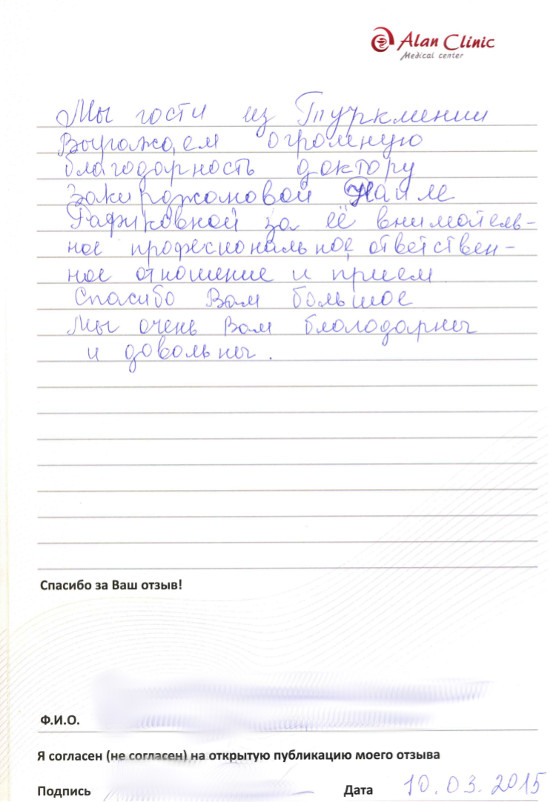 Alan Clinic
Medical center
Мы гости из Туркмении
Выражаем огромную
благодарность доктору
Закирджановой Наиле
Рафиковной за её вниматель-
ное професиональное, ответствен-
ное отношение и прием
Спасибо Вам большое
Мы очень Вам блогодарны
и довольны.
Спасибо за Ваш отзыв!
Ф.И.О.
Я согласен (не согласен) на открытую публикацию моего отзыва
Подпись Дата 10.03.2015